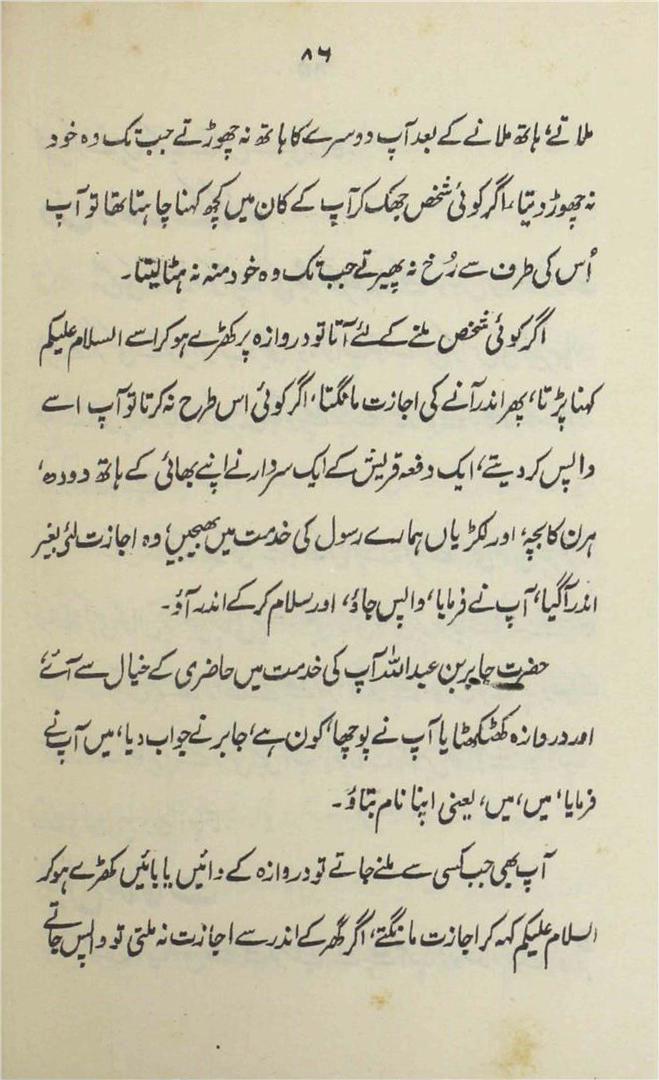 ۸۶
ملاتے، ہاتھ ملانے کے بعد آپ دوسرے کا ہاتھ نہ چھوڑتے جب تک وہ خود
نہ چھوڑ دیتا، اگر کوئی شخص جھک کر آپ کے کان میں کچھ کہنا چاہتا تھا تو آپ
اُس کی طرف سے رُخ نہ پھیرتے جب تک وہ خود منہ نہ ہٹا لیتا۔
اگر کوئی شخص ملنے کے لئے آتا تو دروازہ پر کھڑے ہو کر اسے السلام علیکم
کہنا پڑتا، پھر اندر آنے کی اجازت مانگتا، اگر کوئی اس طرح نہ کرتا تو آپ اسے
واپس کر دیتے، ایک دفعہ قریش کے ایک سردار نے اپنے بھائی کے ہاتھ دودھ،
ہرن کا بچہ، اور لکڑیاں ہمارے رسول کی خدمت میں بھیجیں، وہ اجازت لئے بغیر
اندر آگیا، آپ نے فرمایا، واپس جاؤ، اور سلام کر کے اندر آؤ۔
حضرت جابر بن عبداللہ آپ کی خدمت میں حاضری کے خیال سے آئے،
اور دروازہ کھٹکھٹایا آپ نے پوچھا، کون ہے، جابر نے جواب دیا، میں آپ نے
فرمایا، میں، میں، یعنی اپنا نام بتاؤ۔
آپ بھی جب کسی سے ملنے جاتے تو دروازہ کے دائیں یا بائیں کھڑے ہو کر
السلام علیکم کہہ کر اجازت مانگتے، اگر گھر کے اندر سے اجازت نہ ملتی تو واپس جاتے